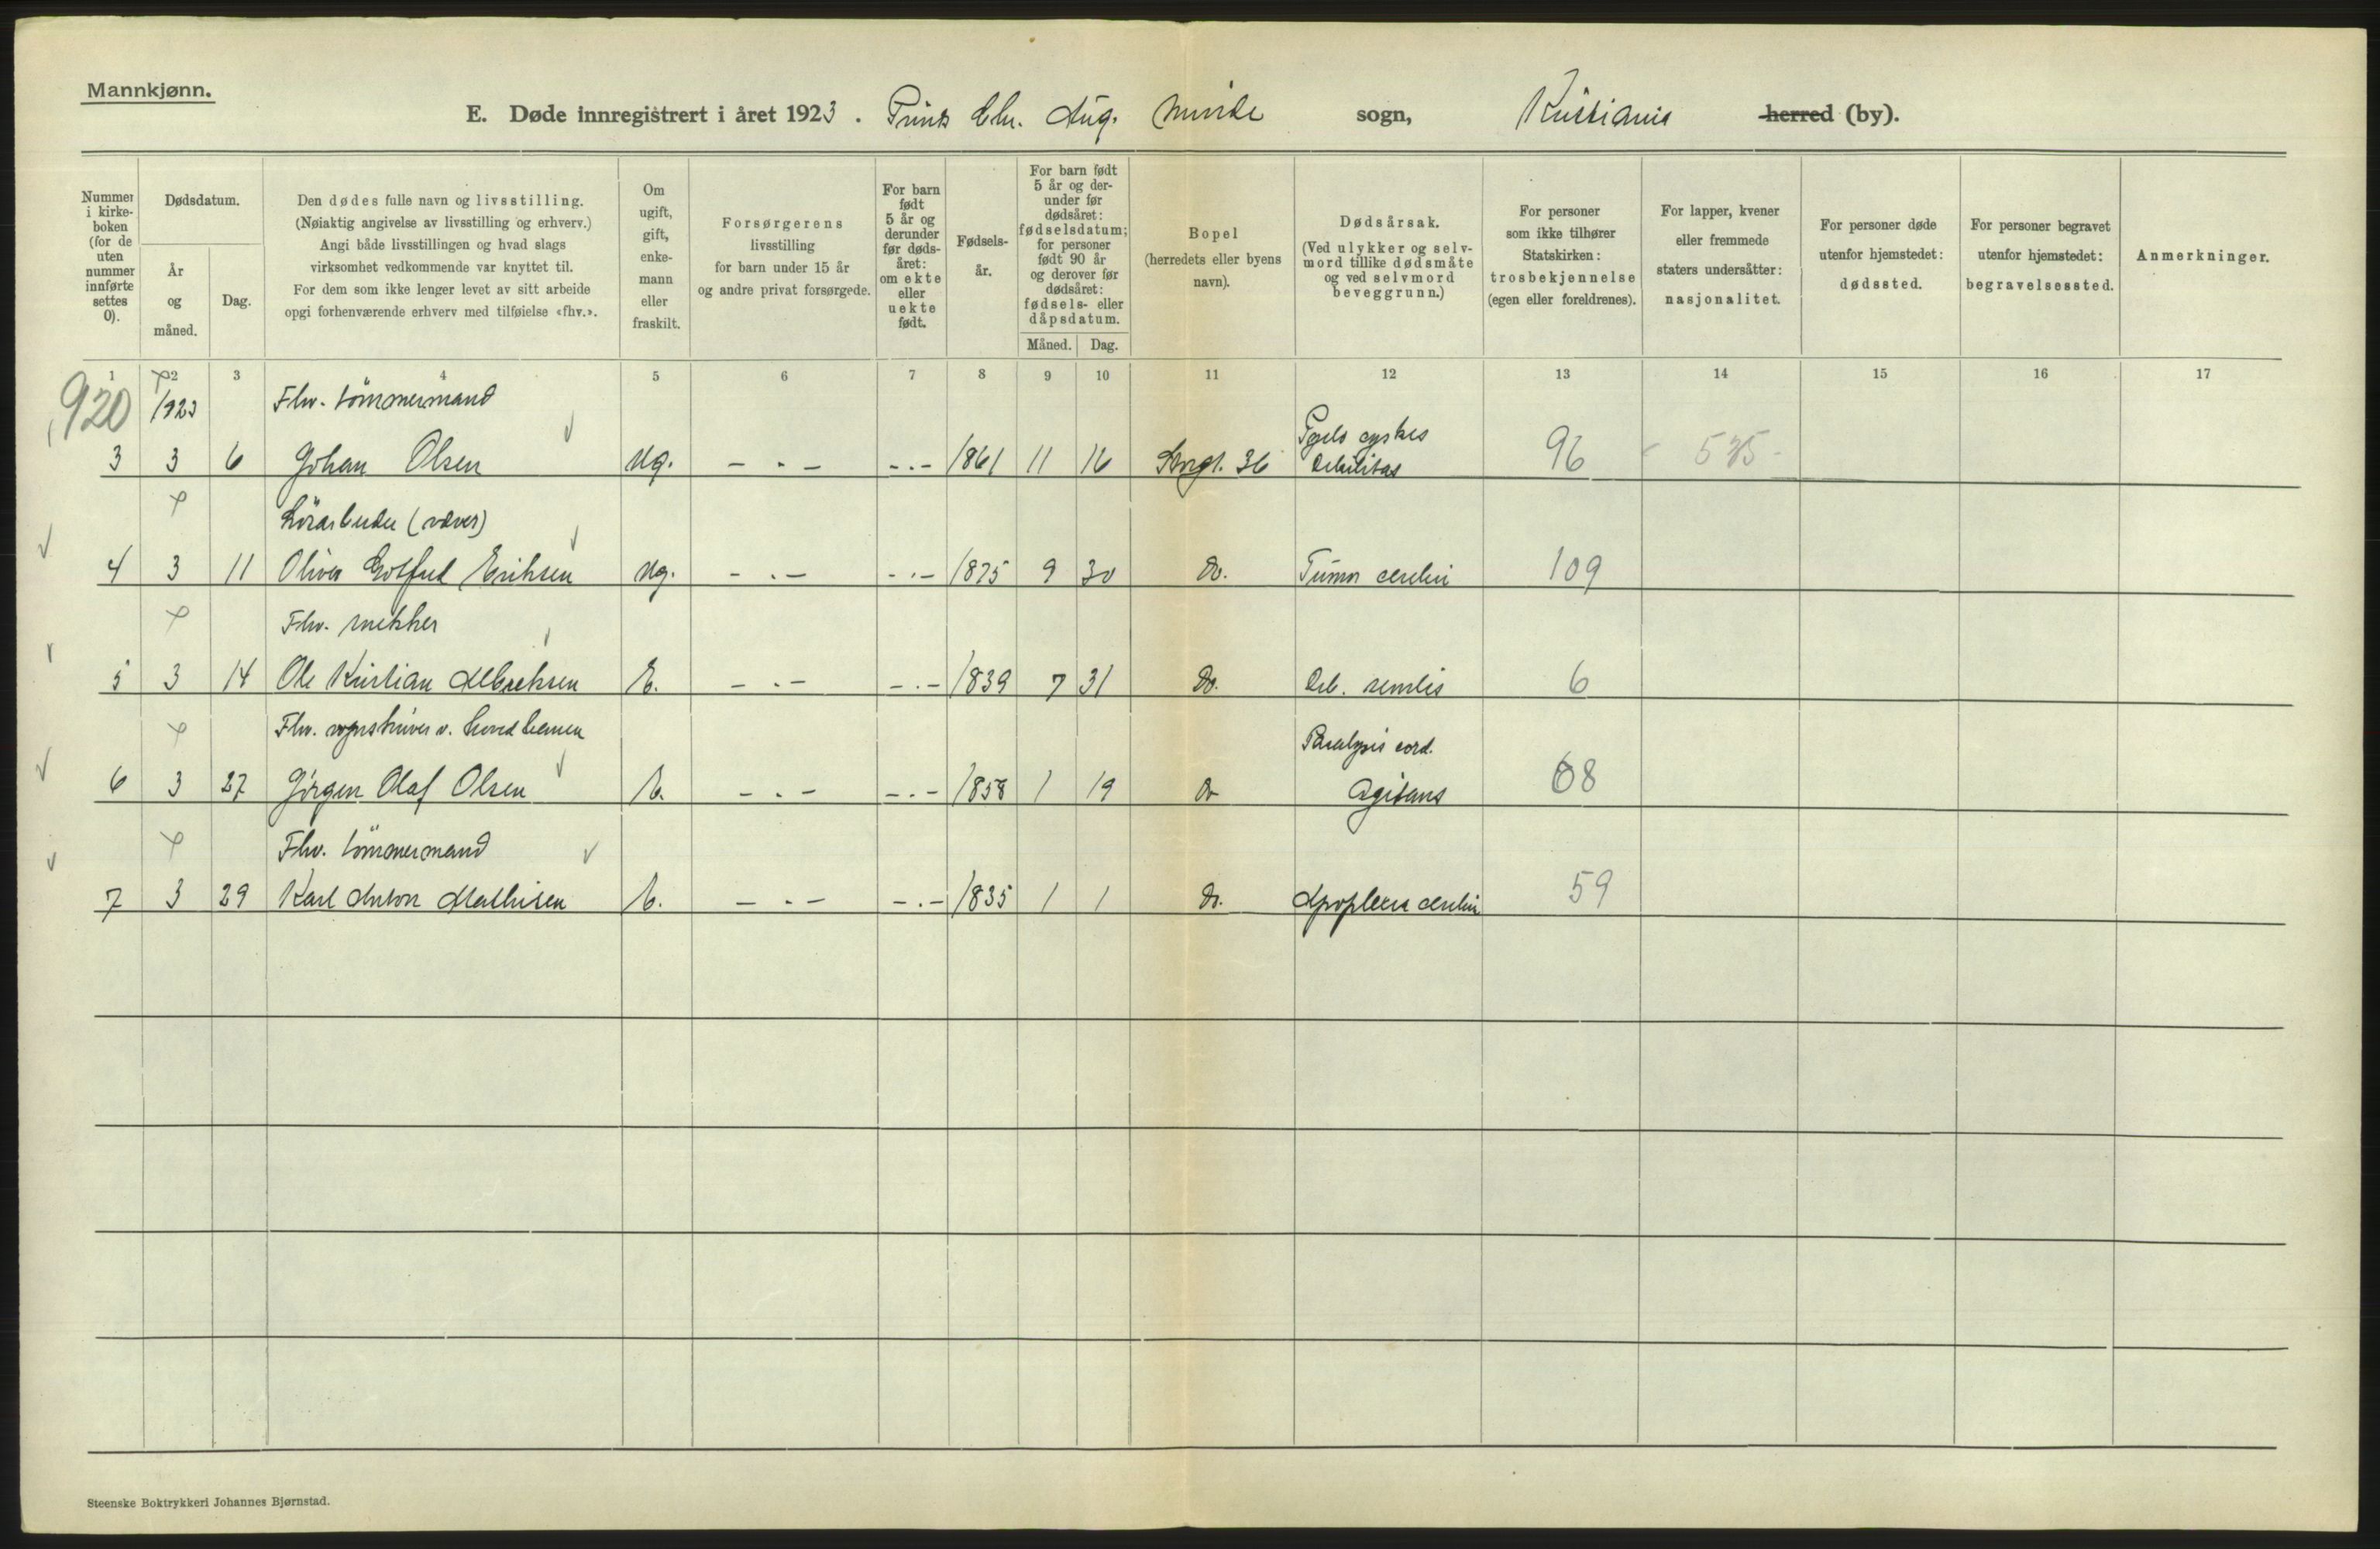 Mannkjønn.
E. Døde innregistrert i året 1923. Prins Chr. Aug. minde sogn, Kristiania herred (by).
Nummer i kirkeboken (for de uten nummer innførte settes 0).
Dødsdatum.
År og måned.
Dag.
Den dødes fulle navn og livsstilling.
(Nøiaktig angivelse av livsstilling og erhverv.)
Angi både livsstillingen og hvad slags
virksomhet vedkommende var knyttet til.
For dem som ikke lenger levet av sitt arbeide
opgi forhenværende erhverv med tilføielse «fhv.».
Om ugift, gift, enkemann eller fraskilt.
Forsørgerens
livsstilling
for barn under 15 år
og andre privat forsørgede.
For barn født 5 år og derunder før dødsåret: om ekte eller uekte født.
Fødselsår.
For barn født 5 år og derunder før dødsåret: fødselsdatum; for personer født 90 år og derover før dødsåret: fødsels- eller dåpsdatum.
Måned. Dag.
Bopel
(herredets eller byens
navn).
Dødsårsak.
(Ved ulykker og selvmord tillike dødsmåte og ved selvmord beveggrunn.)
For personer
som ikke tilhører
Statskirken:
trosbekjennelse
(egen eller foreldrenes).
For lapper, kvener
eller fremmede
staters undersåtter:
nasjonalitet.
For personer døde
utenfor hjemstedet:
dødssted.
For personer begravet
utenfor hjemstedet:
begravelsessted.
Anmerkninger.
1 2 3 4 5 6 7 8 9 10 11 12 13 14 15 16 17
920 1923 Fhv. tømmermand
3 3 6 Johan Olsen Ug. - . - - . - 1861 11 16 Storgt. 36 Debilitas 96 535
(væver)
4 3 11 Oliver Gotfred Eriksen Ug. - . - - . - 1875 9 30 Do. Tumor cerebri 109
Fhv. snekker
5 3 14 Ole Kristian Albrektsen E. - . - - . - 1839 7 31 Do. Deb. senilis 6
Fhv. vognskriver v. hovedbanen Paralysis cord.
6 3 27 Jørgen Olaf Olsen - . - - . - 1858 1 19 Do Agitans 68
Fhv. tømmermand
7 3 29 Karl Anton Mathisen - . - - . - 1835 1 1 Do. Apoplexia cerebri 59
Steenske Boktrykkeri Johannes Bjørnstad.